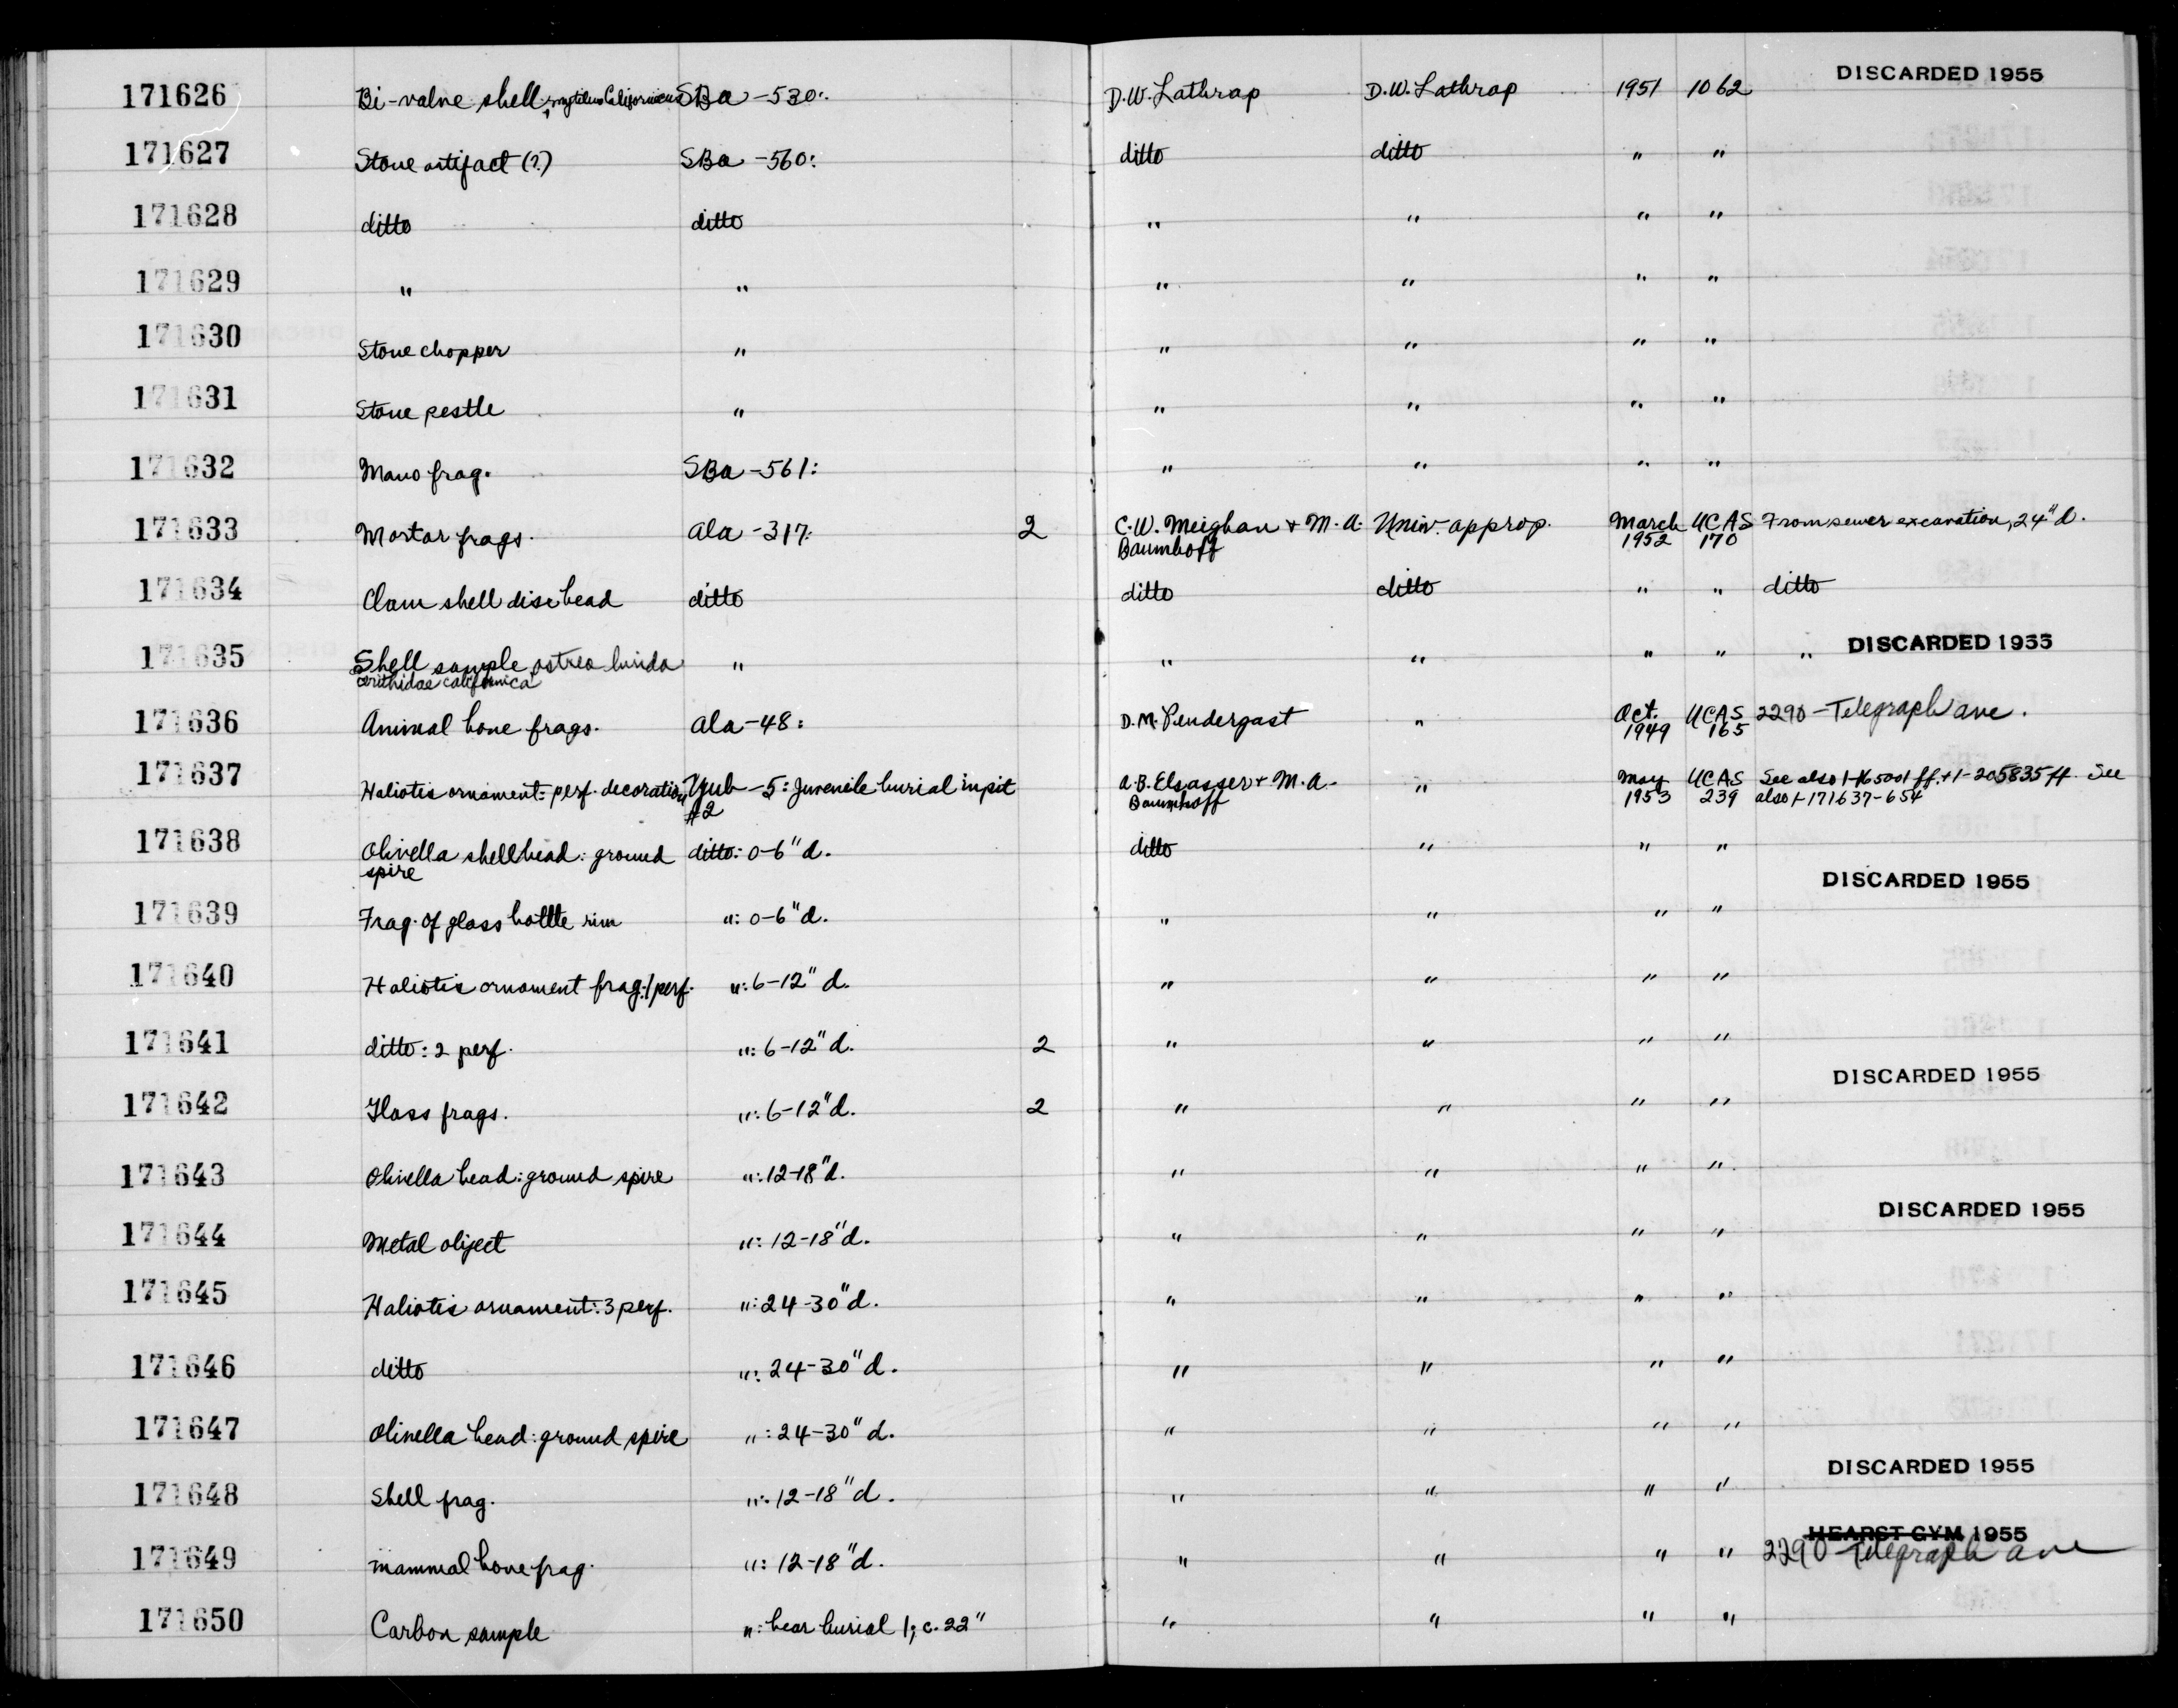 171626 Bi-valve shell, mytilus Californicus SBa -530: D.W. Lathrap D.W. Lathrap 1951 1062 DISCARDED 1955
171627 Stone artifact (?) SBa -560: ditto ditto " "
171628 ditto ditto " " " "
171629 " " " " " "
171630 Stone chopper " " " " "
171631 Stone pestle " " " " "
171632 Mano frag. SBa -561: " " " "
171633 Mortar frags. Ala -317: 2 C.W. Meighan + M.A. Univ. approp. March UCAS From sewer excavation, 24" d.
Baumhoff 1952 170
171634 Clam shell disc bead ditto ditto ditto " " ditto
171635 Shell sample, ostrea lurida " " " " " " DISCARDED 1955
cerithidae californica
171636 Animal bone frags. Ala -48: D.M. Pendergast " Oct. UCAS 2290 - Telegraph Ave.
1949 165
171637 Haliotis ornament: perf. decoration Yub -5: Juvenile burial in pit A.B. Elsasser + M.A. " May UCAS See also 1-165001 ff. + 1-205835 ff. See
#2 Baumhoff 1953 239 also 1-171637-654
171638 Olivella shell bead: ground ditto: 0-6" d. ditto " " "
spire
171639 Frag. of glass bottle rim ": 0-6" d. " " " " DISCARDED 1955
171640 Haliotis ornament frag.: 1 perf. ": 6-12" d. " " " "
171641 ditto: 2 perf. ": 6-12" d. 2 " " " "
171642 Glass frags. ": 6-12" d. 2 " " " " DISCARDED 1955
171643 Olivella bead: ground spire ": 12-18" d. " " " "
171644 Metal object ": 12-18" d. " " " " DISCARDED 1955
171645 Haliotis ornament: 3 perf. ": 24-30" d. " " " "
171646 ditto ": 24-30" d. " " " "
171647 Olivella bead: ground spire ": 24-30" d. " " " "
171648 Shell frag. ": 12-18" d. " " " " DISCARDED 1955
HEARST GYM 1955
171649 mammal bone frag. ": 12-18" d. " " " " 2290 Telegraph Ave
171650 Carbon sample ": near burial 1; c. 22" " " " "